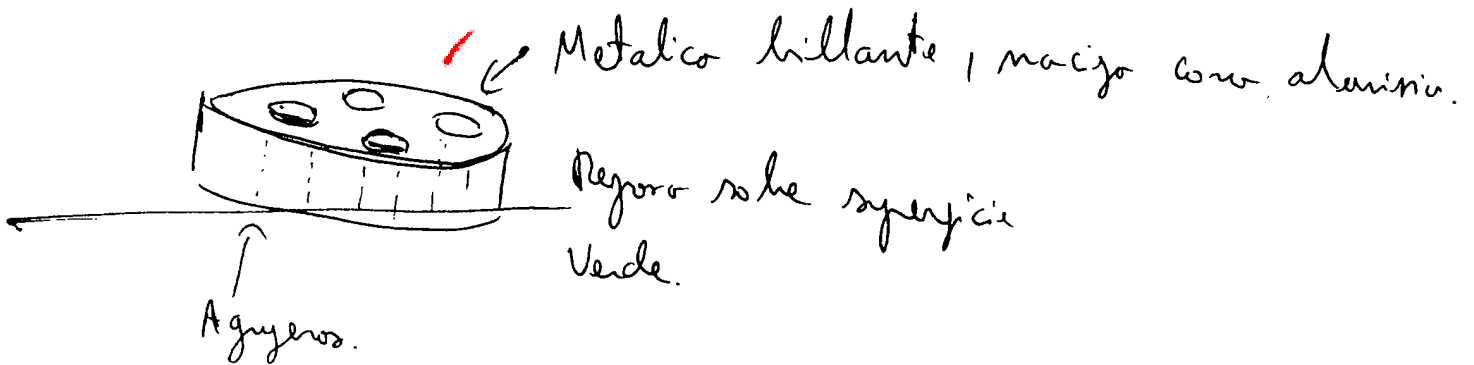 Metalico brillante, macizo como aluminio.
Reposa sobre superficie
Verde.
Agujeros.